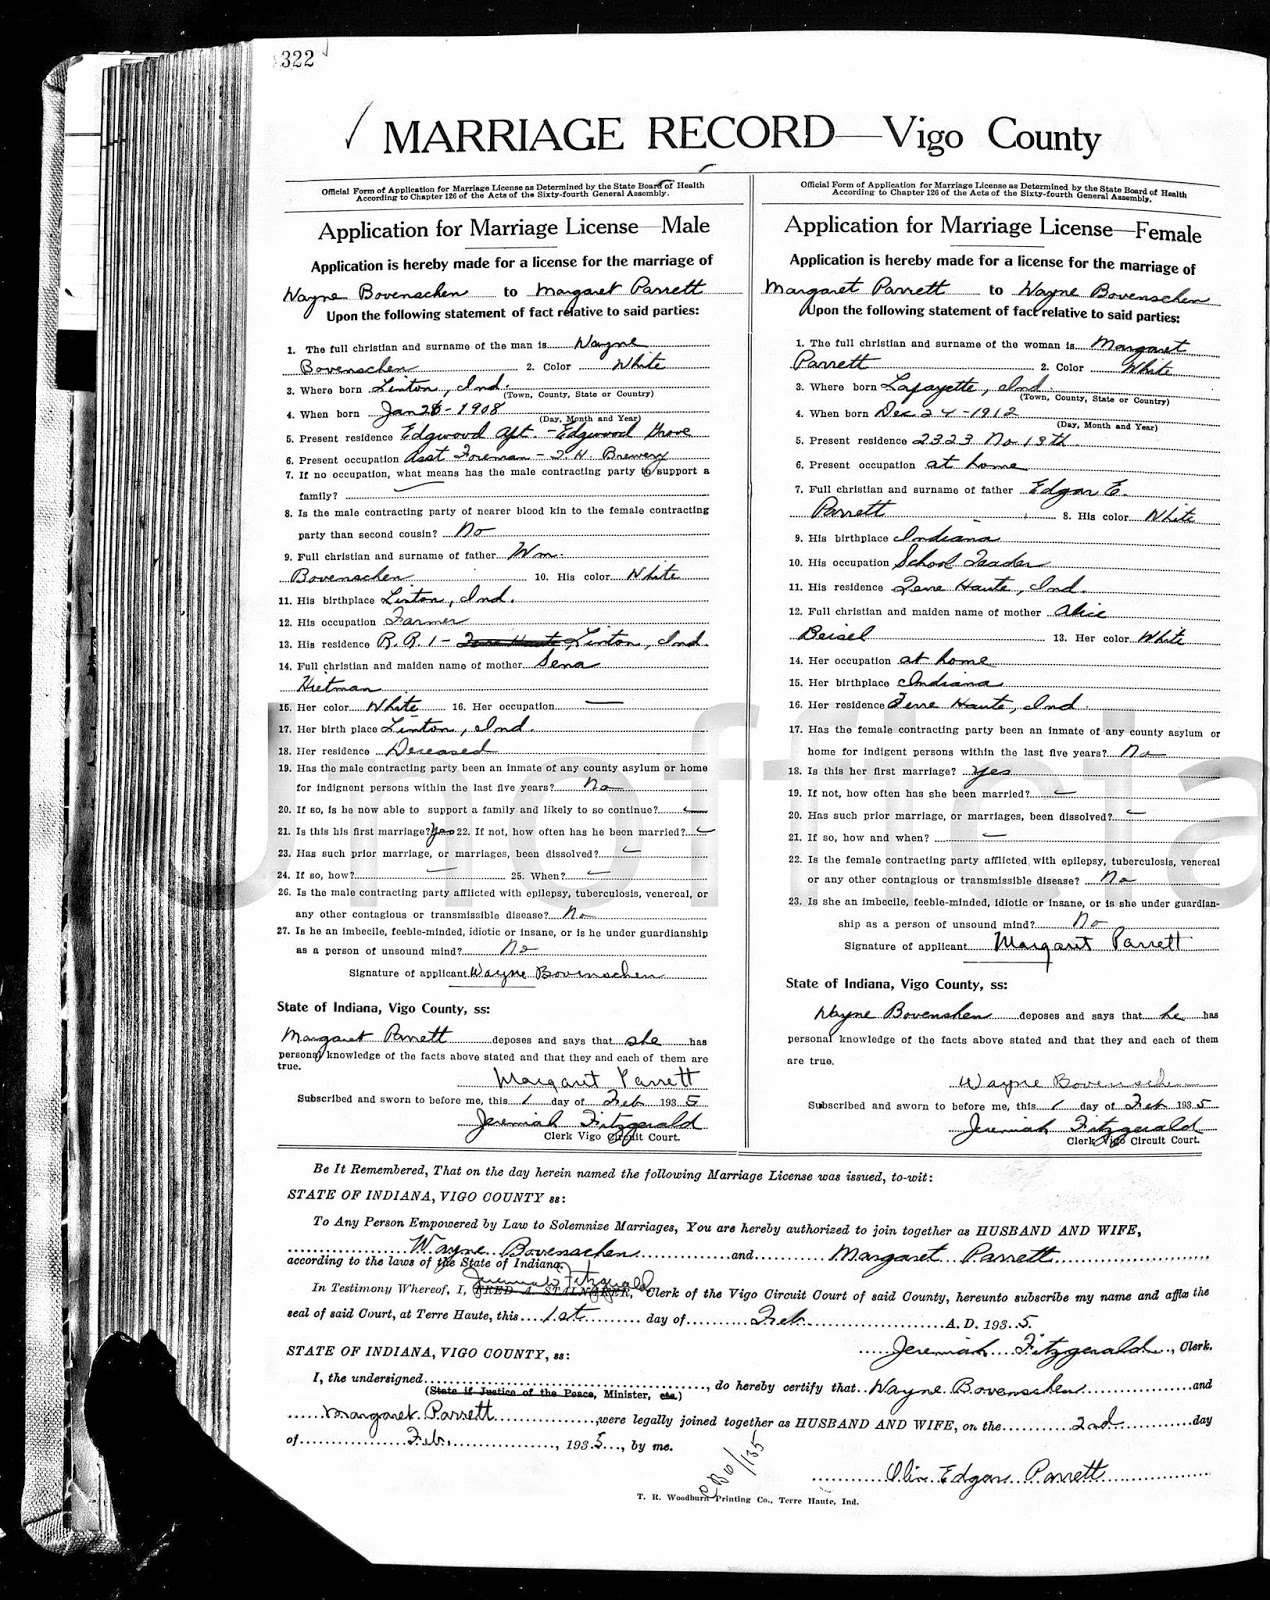 322
MARRIAGE RECORD—Vigo County
Official Form of Application for Marriage License as Determined by the State Board of Health
According to Chapter 126 of the Acts of the Sixty-fourth General Assembly.
Application for Marriage License—Male
Application is hereby made for a license for the marriage of
Wayne Bovenschen to Margaret Parrett
Upon the following statement of fact relative to said parties:
1. The full christian and surname of the man is Wayne
Bovenschen 2. Color White
3. Where born Linton, Ind.
(Town, County, State or Country)
4. When born Jan 26 - 1908
(Day, Month and Year)
5. Present residence Edgwood Apt. - Edgwood Grove
6. Present occupation Asst Foreman - T. H. Brewery
7. If no occupation, what means has the male contracting party to support a
family?
8. Is the male contracting party of nearer blood kin to the female contracting
party than second cousin? No
9. Full christian and surname of father Wm.
Bovenschen 10. His color White
11. His birthplace Linton, Ind.
12. His occupation Farmer
13. His residence R. R. 1 - Terre Haute Linton, Ind.
14. Full christian and maiden name of mother Sena
Hietman
15. Her color White 16. Her occupation —
17. Her birth place Linton, Ind.
18. Her residence Deceased
19. Has the male contracting party been an inmate of any county asylum or home
for indignent persons within the last five years? No
20. If so, is he now able to support a family and likely to so continue?
21. Is this his first marriage? Yes 22. If not, how often has he been married?
23. Has such prior marriage, or marriages, been dissolved?
24. If so, how? 25. When?
26. Is the male contracting party afflicted with epilepsy, tuberculosis, venereal, or
any other contagious or transmissible disease? No
27. Is he an imbecile, feeble-minded, idiotic or insane, or is he under guardianship
as a person of unsound mind? No
Signature of applicant Wayne Bovenschen
State of Indiana, Vigo County, ss:
Margaret Parrett deposes and says that she has
personal knowledge of the facts above stated and that they and each of them are
true.
Margaret Parrett
Subscribed and sworn to before me, this 1 day of Feb 1935
Jeremiah Fitzgerald
Clerk Vigo Circuit Court.
Official Form of Application for Marriage License as Determined by the State Board of Health
According to Chapter 126 of the Acts of the Sixty-fourth General Assembly.
Application for Marriage License—Female
Application is hereby made for a license for the marriage of
Margaret Parrett to Wayne Bovenschen
Upon the following statement of fact relative to said parties:
1. The full christian and surname of the woman is Margaret
Parrett 2. Color White
3. Where born Lafayette, Ind.
(Town, County, State or Country)
4. When born Dec 24 - 1912
(Day, Month and Year)
5. Present residence 2323 No 13th
6. Present occupation at home
7. Full christian and surname of father Edgar E.
Parrett 8. His color White
9. His birthplace Indiana
10. His occupation School Teacher
11. His residence Terre Haute, Ind.
12. Full christian and maiden name of mother Alice
Beisel 13. Her color White
14. Her occupation at home
15. Her birthplace Indiana
16. Her residence Terre Haute, Ind.
17. Has the female contracting party been an inmate of any county asylum or
home for indigent persons within the last five years? No
18. Is this her first marriage? Yes
19. If not, how often has she been married?
20. Has such prior marriage, or marriages, been dissolved?
21. If so, how and when?
22. Is the female contracting party afflicted with epilepsy, tuberculosis, venereal
or any other contagious or transmissible disease? No
23. Is she an imbecile, feeble-minded, idiotic or insane, or is she under guardian-
ship as a person of unsound mind? No
Signature of applicant Margaret Parrett
State of Indiana, Vigo County, ss:
Wayne Bovenshen deposes and says that he has
personal knowledge of the facts above stated and that they and each of them
are true.
Wayne Bovenschen
Subscribed and sworn to before me, this 1 day of Feb 1935
Jeremiah Fitzgerald
Clerk Vigo Circuit Court.
Be It Remembered, That on the day herein named the following Marriage License was issued, to-wit:
STATE OF INDIANA, VIGO COUNTY ss:
To Any Person Empowered by Law to Solemnize Marriages, You are hereby authorized to join together as HUSBAND AND WIFE,
Wayne Bovenschen and Margaret Parrett
according to the laws of the State of Indiana.
Jeremiah Fitzgerald
In Testimony Whereof, I, FRED A. STALNAKER, Clerk of the Vigo Circuit Court of said County, hereunto subscribe my name and affix the
seal of said Court, at Terre Haute, this 1st day of Feb A. D. 1935
Jeremiah Fitzgerald, Clerk.
STATE OF INDIANA, VIGO COUNTY, ss:
I, the undersigned, do hereby certify that Wayne Bovenschen and
(State if Justice of the Peace, Minister, etc.)
Margaret Parrett were legally joined together as HUSBAND AND WIFE, on the 2nd day
of Feb., 1935, by me.
Edgar Parrett
T. R. Woodburn Printing Co., Terre Haute, Ind.
Unofficia